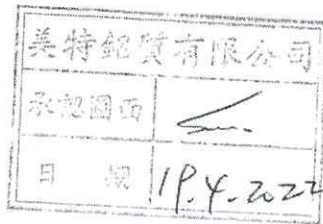 美特鋁質有限公司
承認圖面
日 期 19.4.2022